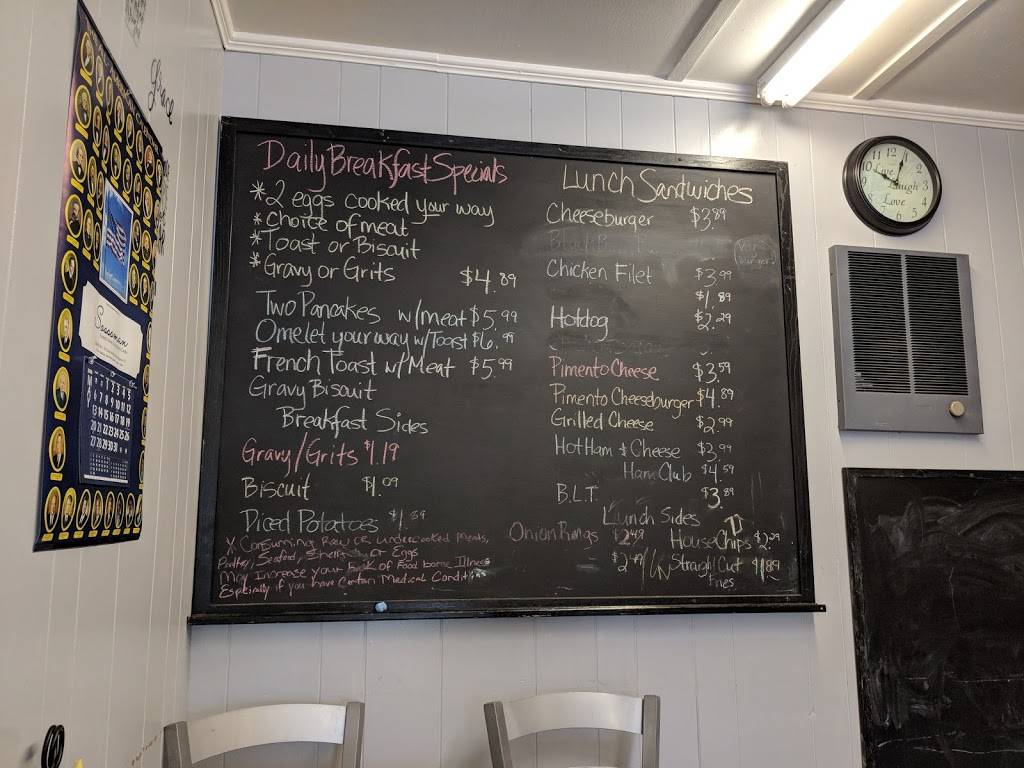 Grace
Daily Breakfast Specials
*2 eggs cooked your way
*Choice of meat
*Toast or Biscuit
*Gravy or Grits $4.89
Two Pancakes w/meat $5.99
Omelet your way w/Toast $6.99
French Toast w/Meat $5.99
Gravy Biscuit
Breakfast Sides
Gravy/Grits $1.19
Biscuit $1.09
Diced Potatoes $1.59
Consuming Raw or undercooked Meats,
Poultry, Seafood, Shellfish or Eggs
May Increase your Risk of Food borne Illness
Especially if you have Certain Medical Conditi
Lunch Sandwiches
Cheeseburger $3.89
Chicken Filet $3.99
$1.89
Hotdog $2.29
Pimento Cheese $3.59
Pimento Cheeseburger $4.89
Grilled Cheese $2.99
Hot Ham & Cheese $3.99
Ham Club $4.59
B.L.T. $3.89
Lunch Sides
Onion Rings $2.49 House Chips $2.29
$2.49 Straight Cut $1.89
Fries
12
11
1
10
2
3
8
4
6
5
Live
Laugh
Love